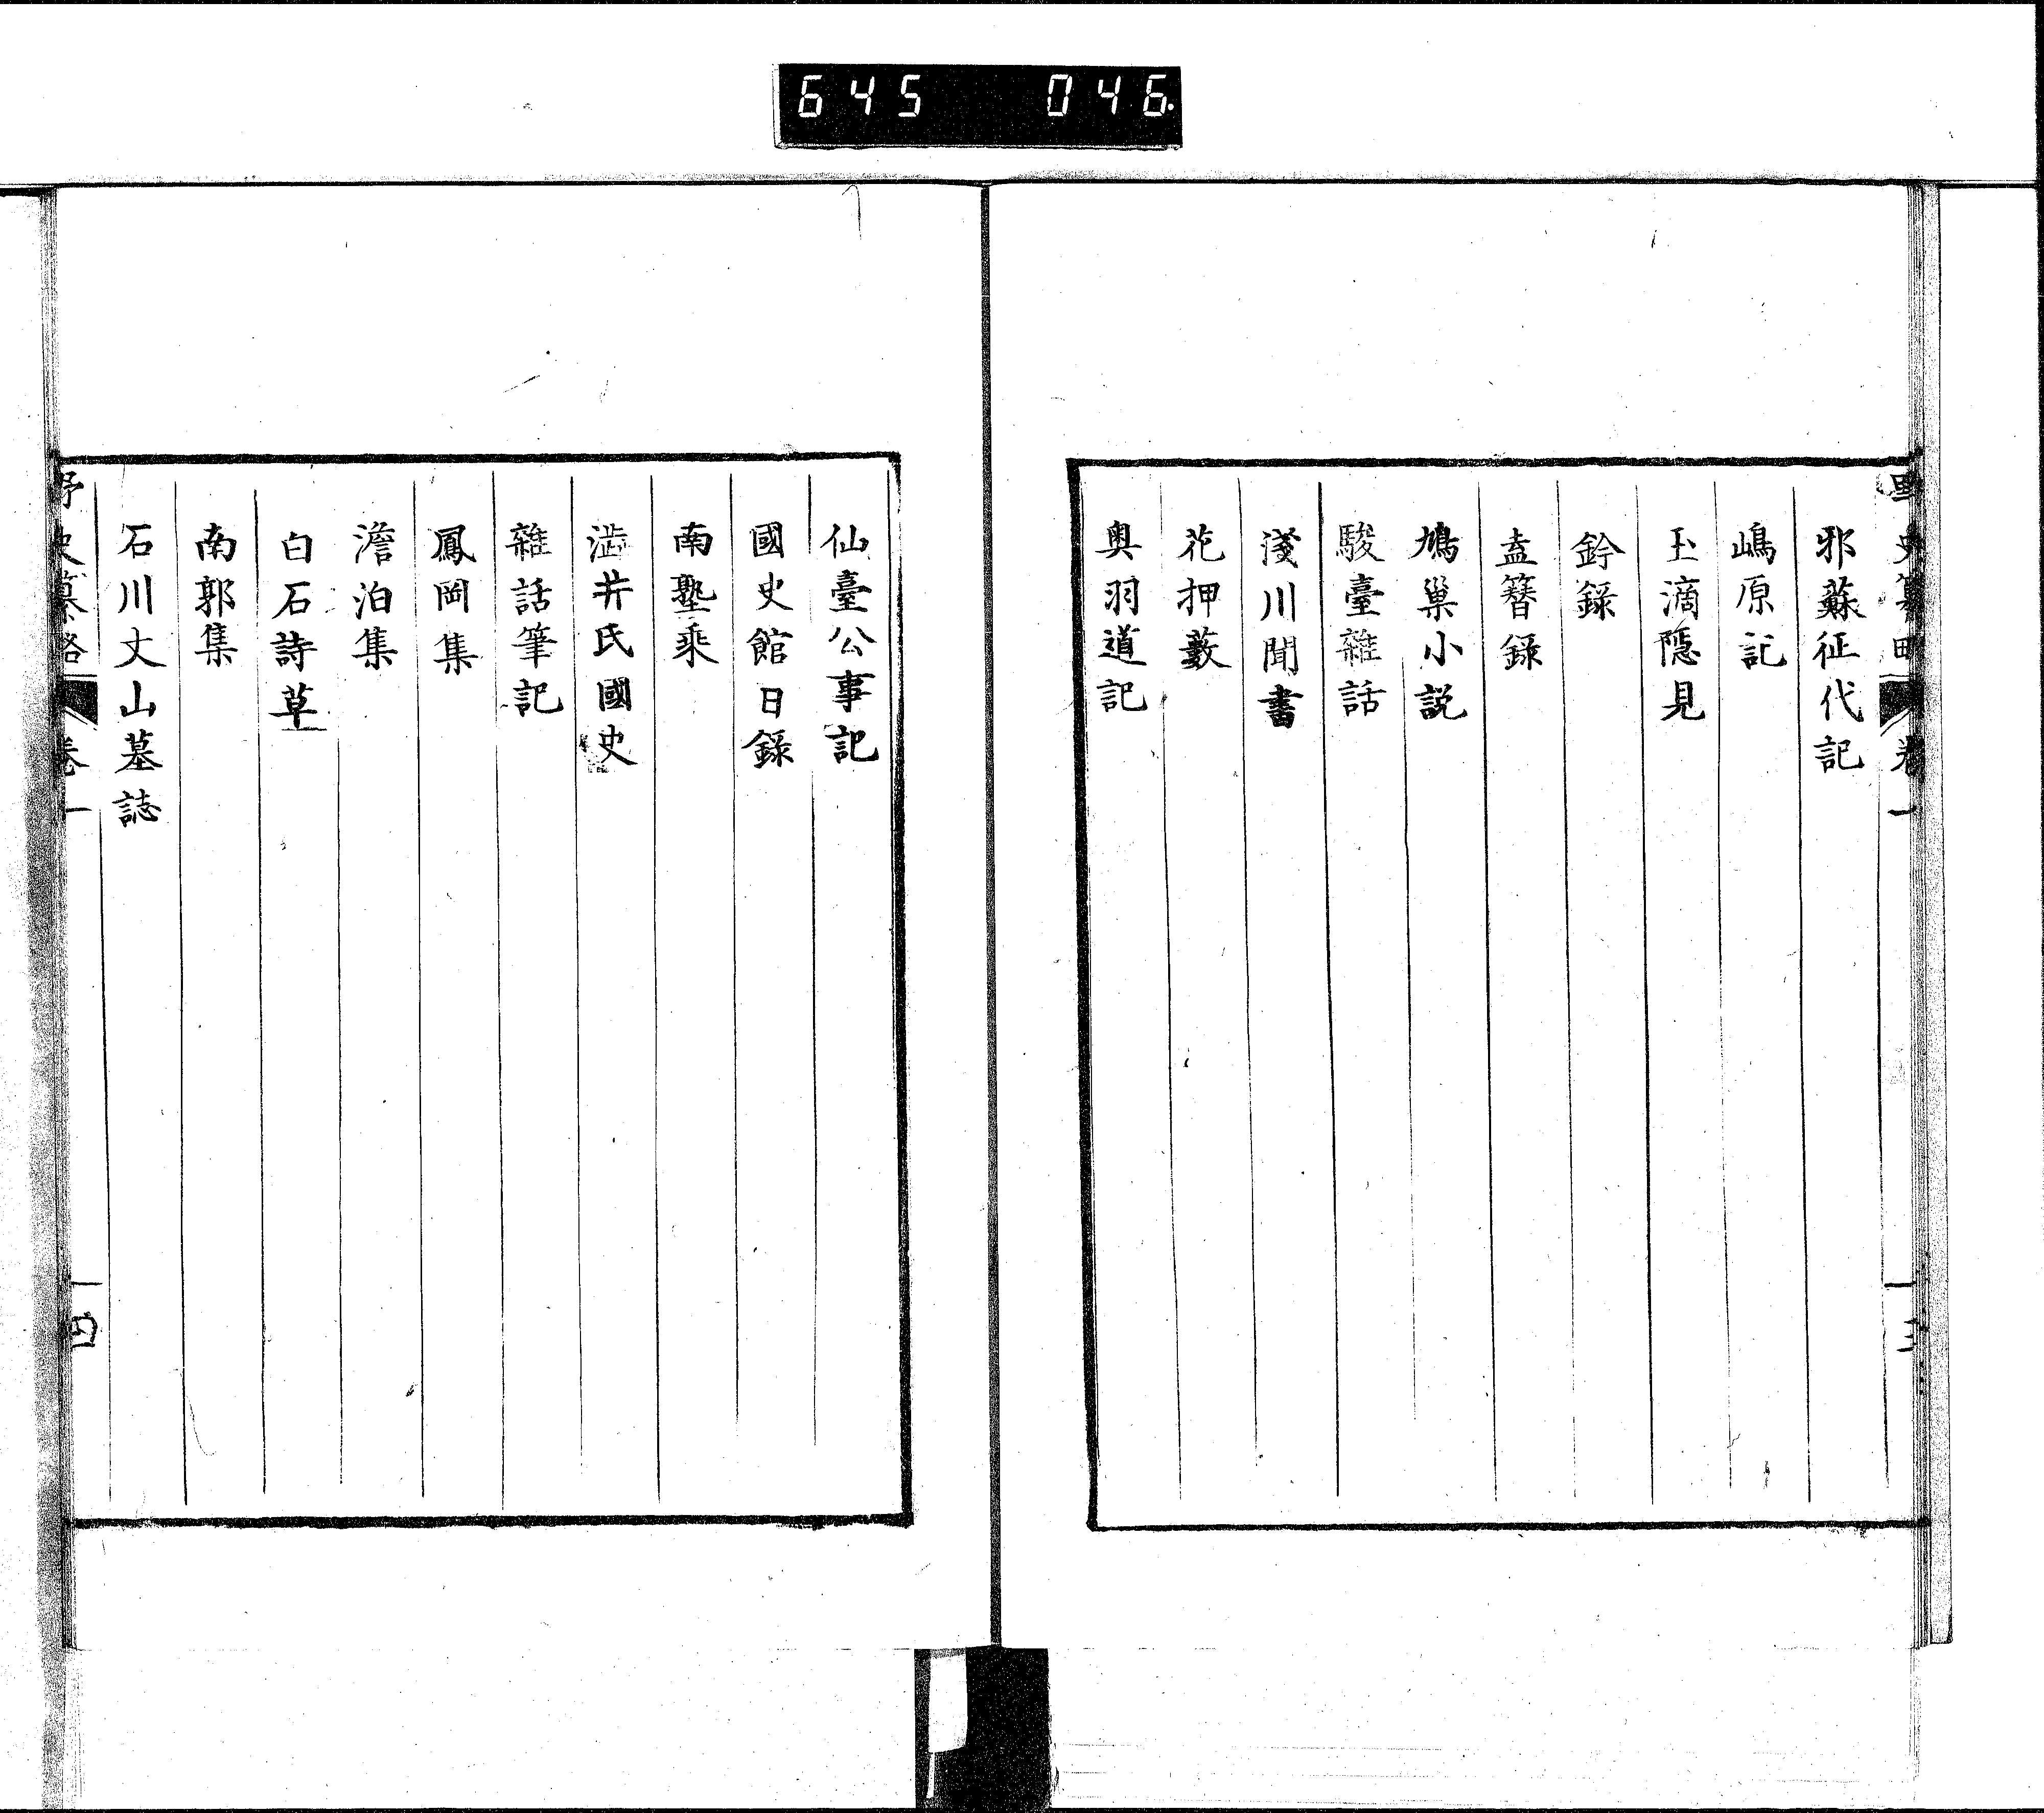 645 046
野史纂略 卷一 一三
邪蘇征代記
嶋原記
玉滴隱見
鈐錄
盍簪録
鳩巢小説
駿臺雜話
淺川聞書
花押藪
奥羽道記
仙臺公事記
國史館日錄
南塾乘
澁井氏國史
雜話筆記
鳳岡集
澹泊集
白石詩草
南郭集
石川丈山墓誌
野史纂略 卷一 一四